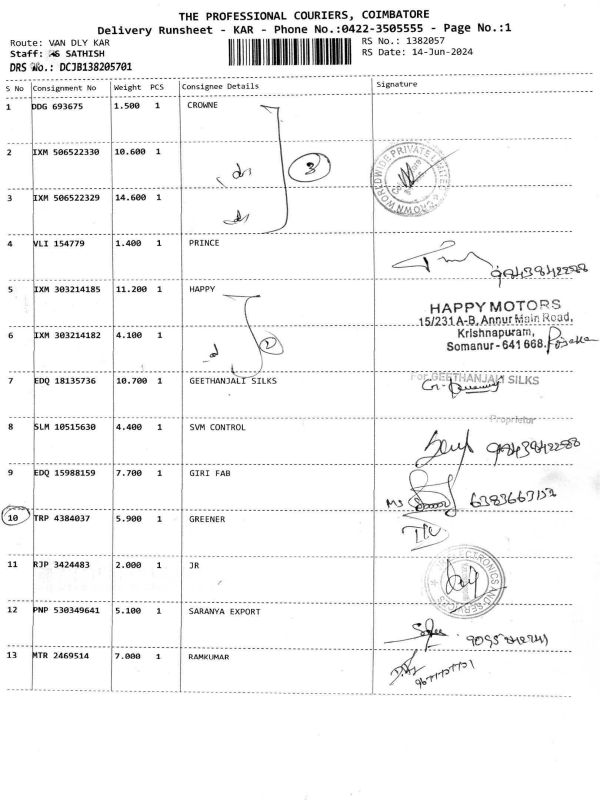 THE PROFESSIONAL COURIERS, COIMBATORE
Delivery Runsheet - KAR - Phone No.:0422-3505555 - Page No.:1
Route: VAN DLY KAR
RS No.: 1382057
Staff: SATHISH
RS Date: 14-Jun-2024
DRS No.: DCJB138205701
S No Consignment No Weight PCS Consignee Details Signature
1 DDG 693675 1.500 1 CROWNE
2 IXM 506522330 10.600 1
3
3 IXM 506522329 14.600 1
WORLDWIDE PRIVATE LIMITED CROWN
4 VLI 154779 1.400 1 PRINCE
9843942288
5 IXM 303214185 11.200 1 HAPPY
HAPPY MOTORS
15/231 A-B, Annur Main Road,
Krishnapuram,
Somanur - 641 668.
6 IXM 303214182 4.100 1
2
7 EDQ 18135736 10.700 1 GEETHANJALI SILKS
For GEETHANJALI SILKS
Proprietor
8 SLM 10515630 4.400 1 SVM CONTROL
9843942288
9 EDQ 15988159 7.700 1 GIRI FAB
6383667152
10 TRP 4384037 5.900 1 GREENER
11 RJP 3424483 2.000 1 JR
ELECTRONICS AND SERVICES
12 PNP 530349641 5.100 1 SARANYA EXPORT
13 MTR 2469514 7.000 1 RAMKUMAR